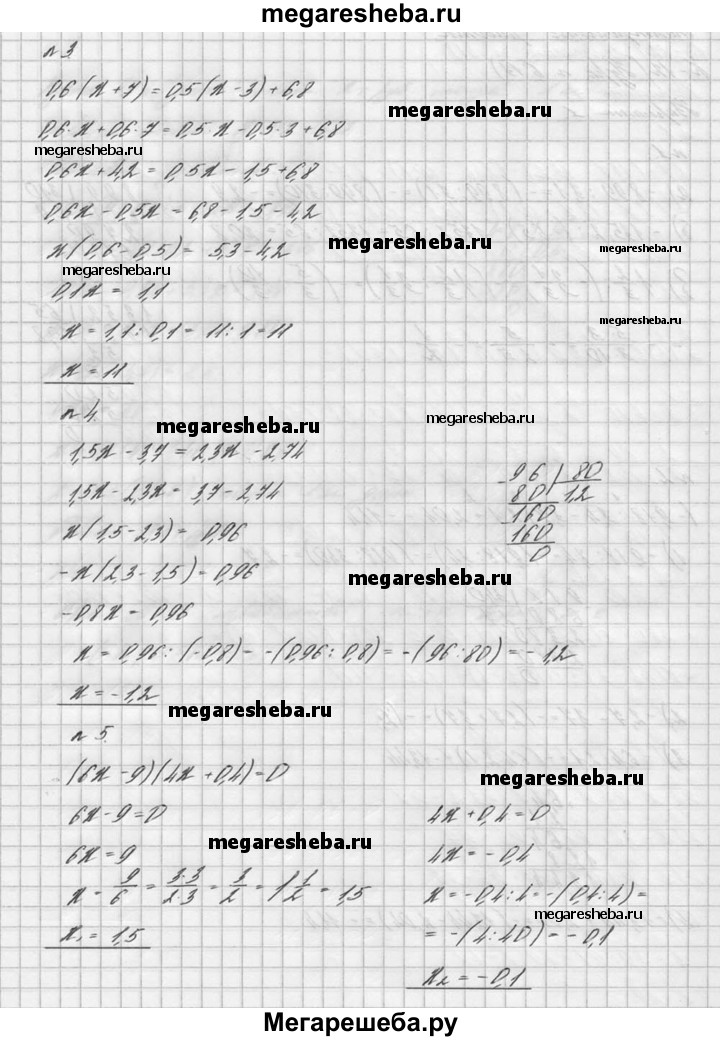 megaresheba.ru
n 3
0,6(x+7)=0,5(x-3)+6,8
megaresheba.ru
0,6·x+0,6·7=0,5·x-0,5·3+6,8
megaresheba.ru
0,6x+4,2=0,5x-1,5+6,8
0,6x-0,5x=6,8-1,5-4,2
megaresheba.ru
x(0,6-0,5)=5,3-4,2
megaresheba.ru
megaresheba.ru
0,1x=1,1
megaresheba.ru
x=1,1:0,1=11:1=11
x=11
n 4.
megaresheba.ru
megaresheba.ru
1,5x-3,7=2,3x-2,74
1,5x-2,3x=3,7-2,74
x(1,5-2,3)=0,96
-x(2,3-1,5)=0,96
-0,8x=0,96
-96 | 80
80 | 1,2
-160
160
0
megaresheba.ru
x=0,96:(-0,8)=-(0,96:0,8)=-(96:80)=-1,2
x=-1,2
megaresheba.ru
n 5.
(6x-9)(4x+0,4)=0
megaresheba.ru
6x-9=0
6x=9
megaresheba.ru
x=9/6=3·3/2·3=3/2=1 1/2=1,5
x₁=1,5
4x+0,4=0
4x=-0,4
x=-0,4:4=-(0,4:4)=
megaresheba.ru
=-(4:40)=-0,1
x₂=-0,1
Мегарешеба.ру